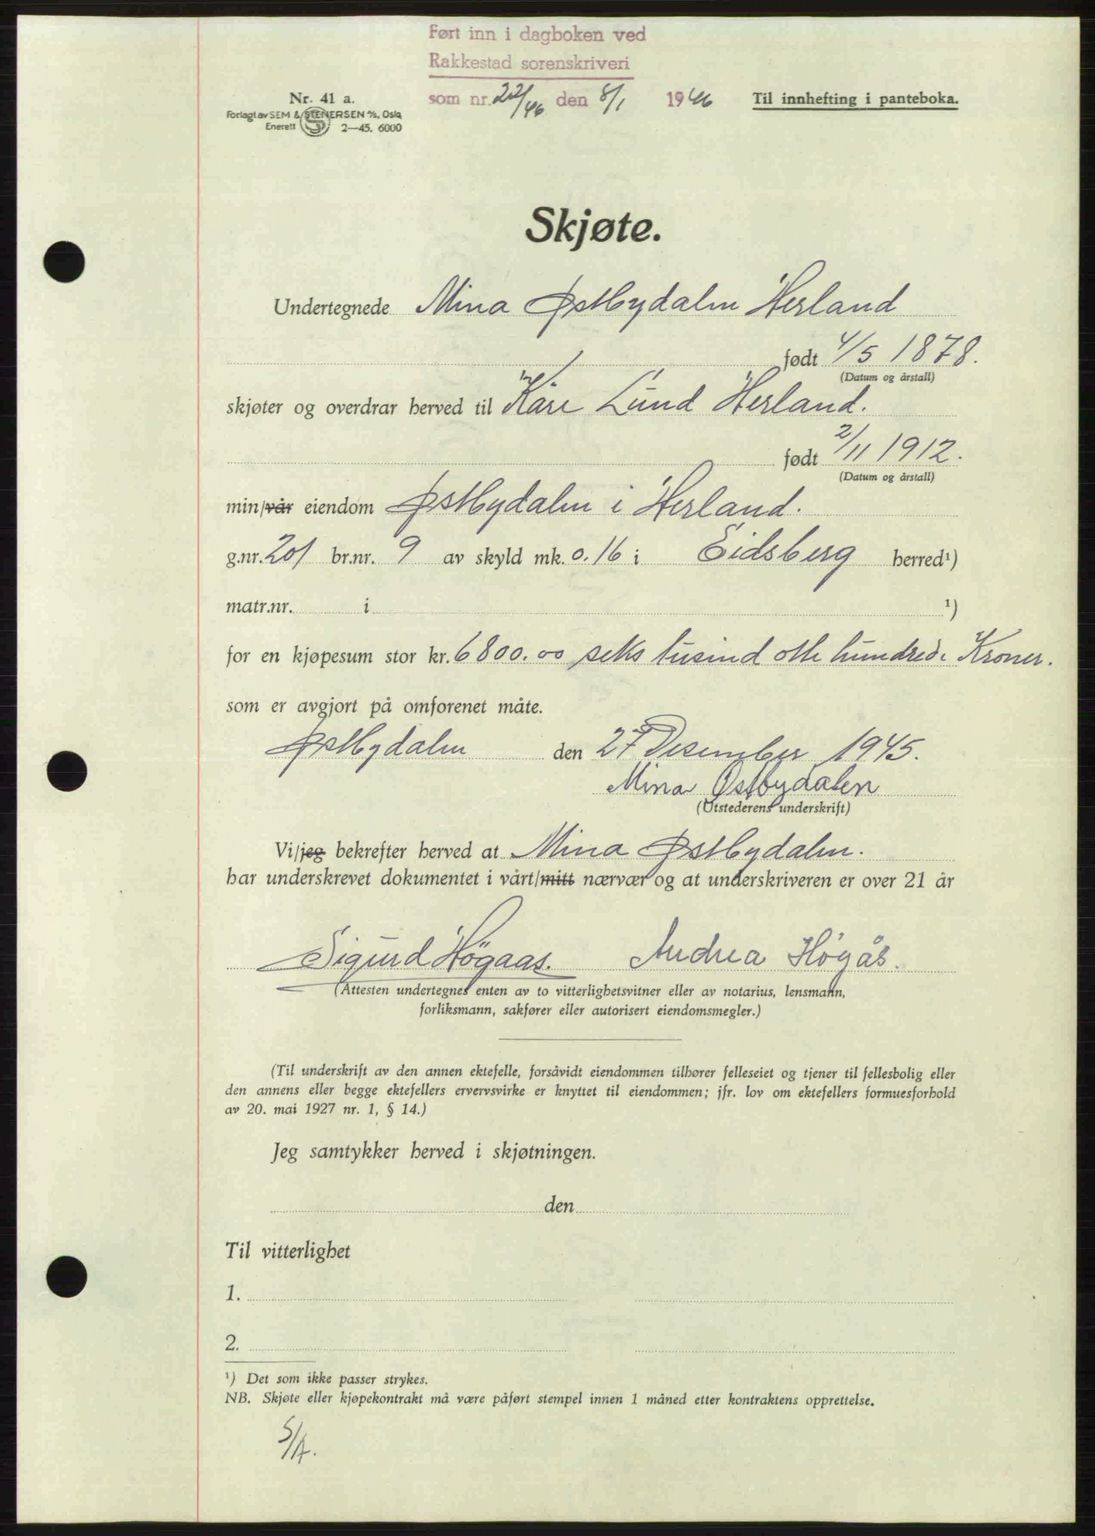 Ført inn i dagboken ved
Rakkestad sorenskriveri
som nr. 22/46 den 8/1 1946
Til innhefting i panteboka.
Nr. 41 a.
Forlagt av SEM & STENERSEN A/S, Oslo
Enerett 2—45. 6000
Skjøte.
Undertegnede Mina Østbydalen Herland
født 4/5 1878.
(Datum og årstall)
skjøter og overdrar herved til Kåre Lund Herland.
født 2/11 1912.
(Datum og årstall)
min/vår eiendom Østbydalen i Herland.
g.nr. 201 br.nr. 9 av skyld mk. 0.16 i Eidsberg herred¹)
matr.nr. i ¹)
for en kjøpesum stor kr. 6800.00 seks tusind otte hundrede Kroner.
som er avgjort på omforenet måte.
Østbydalen den 27 Desember 1945.
Mina Østbydalen
(Utstederens underskrift)
Vi/jeg bekrefter herved at Mina Østbydalen.
har underskrevet dokumentet i vårt/mitt nærvær og at underskriveren er over 21 år
Sigurd Högaas. Andrea Høgås.
(Attesten undertegnes enten av to vitterlighetsvitner eller av notarius, lensmann,
forliksmann, sakfører eller autorisert eiendomsmegler.)
(Til underskrift av den annen ektefelle, forsåvidt eiendommen tilhører felleseiet og tjener til fellesbolig eller
den annens eller begge ektefellers ervervsvirke er knyttet til eiendommen; jfr. lov om ektefellers formuesforhold
av 20. mai 1927 nr. 1, § 14.)
Jeg samtykker herved i skjøtningen.
den
Til vitterlighet
1.
2.
¹) Det som ikke passer strykes.
NB. Skjøte eller kjøpekontrakt må være påført stempel innen 1 måned etter kontraktens opprettelse.
S/A.